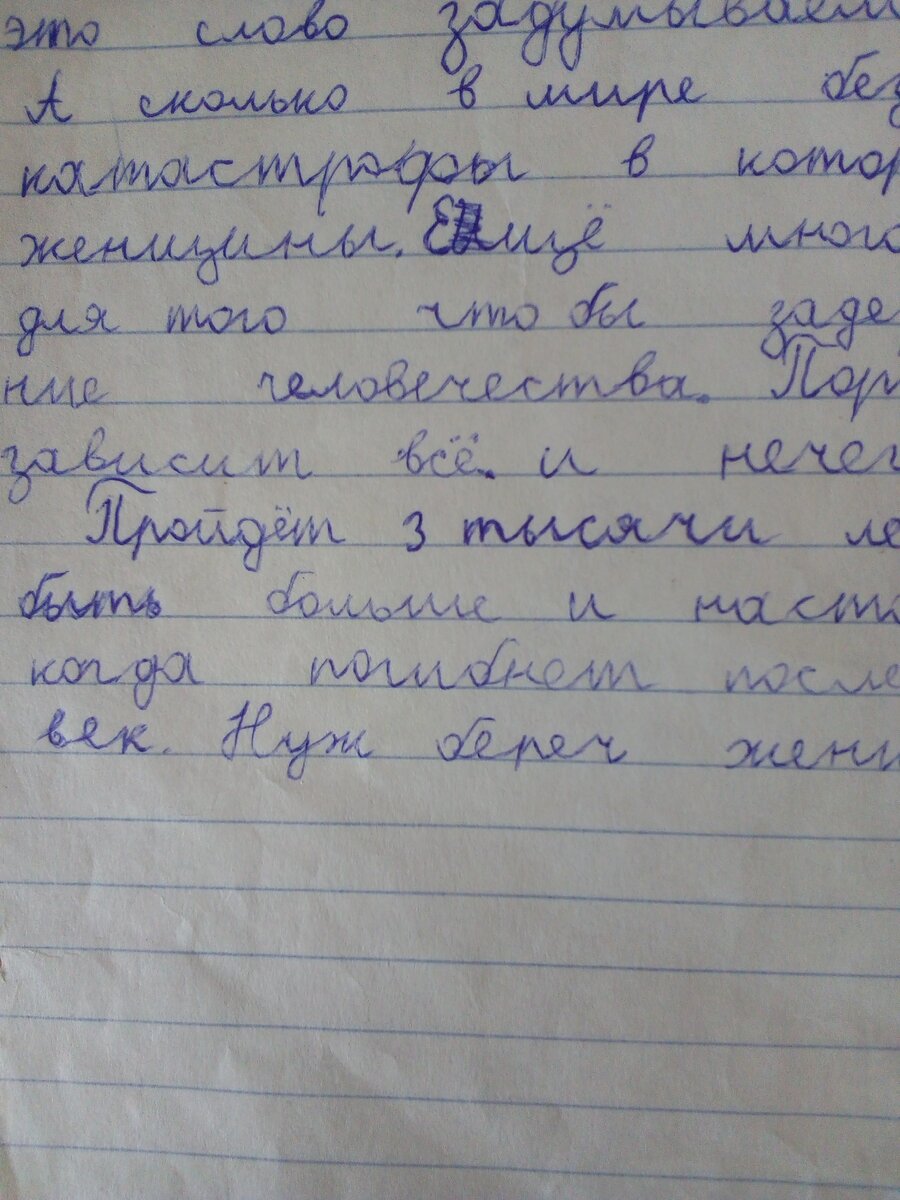 это слово задумываем
А сколько в мире без
катастрофы в котор
женщины. Ещё много
для того что бы заде
ние человечества. Пор
зависит всё. и нечег
Пройдёт 3 тысячи ле
быть больше и наста
когда погибнет после
век. Нуж береч жен